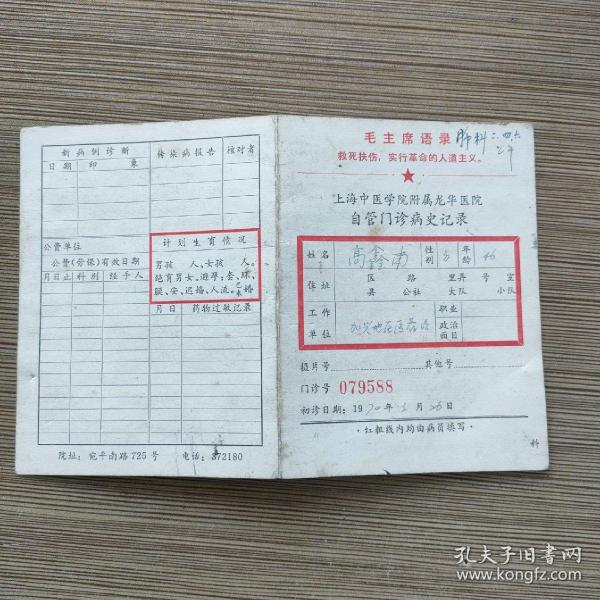 新病例诊断 传染病报告 核对者
日期 印象
公费单位
公费(劳保)有效日期
月日止 科别 经手人
计划生育情况
男孩 人、女孩 人。
绝育男女、避孕:套、环、
膜、安、迟婚、人流。已未婚
月日 药物过敏记录
院址:宛平南路725号 电话:372180
毛主席语录
肺科 二.四.六
上午
救死扶伤,实行革命的人道主义。
上海中医学院附属龙华医院
自管门诊病史记录
姓名 高鑫南 性别 年龄 46
住址 区 路 里弄 号 室
县 公社 大队 小队
工作单位 职业
政治面目
摄片号 其他号
门诊号 079588
初诊日期:1970年 月26日
·红粗线内均由病员填写·
科
孔夫子旧书网
www.kongfz.com